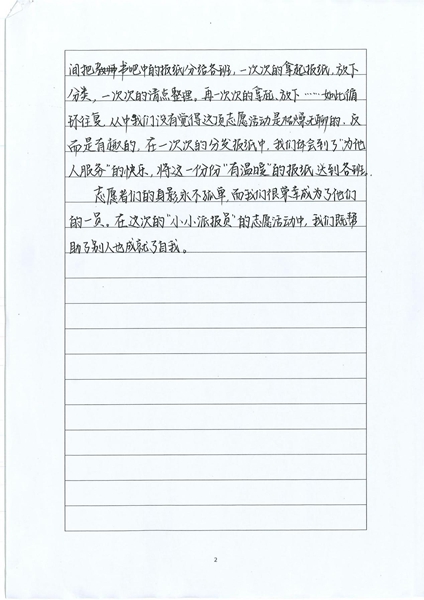 间把教师书吧中的报纸分给各班，一次次的拿起报纸、放下
分类，一次次的清点整理。再一次次的拿起、放下……如此循
环往复。从中我们没有觉得这项志愿活动是枯燥无聊的，反
而是有趣的，在一次次的分发报纸中，我们体会到了“为他
人服务”的快乐，将这一份份“有温暖”的报纸送到各班。
志愿者们的身影永不孤单，而我们很荣幸成为了他们
的一员。在这次的“小小派报员”的志愿活动中，我们既帮
助了别人也成就了自我。
2